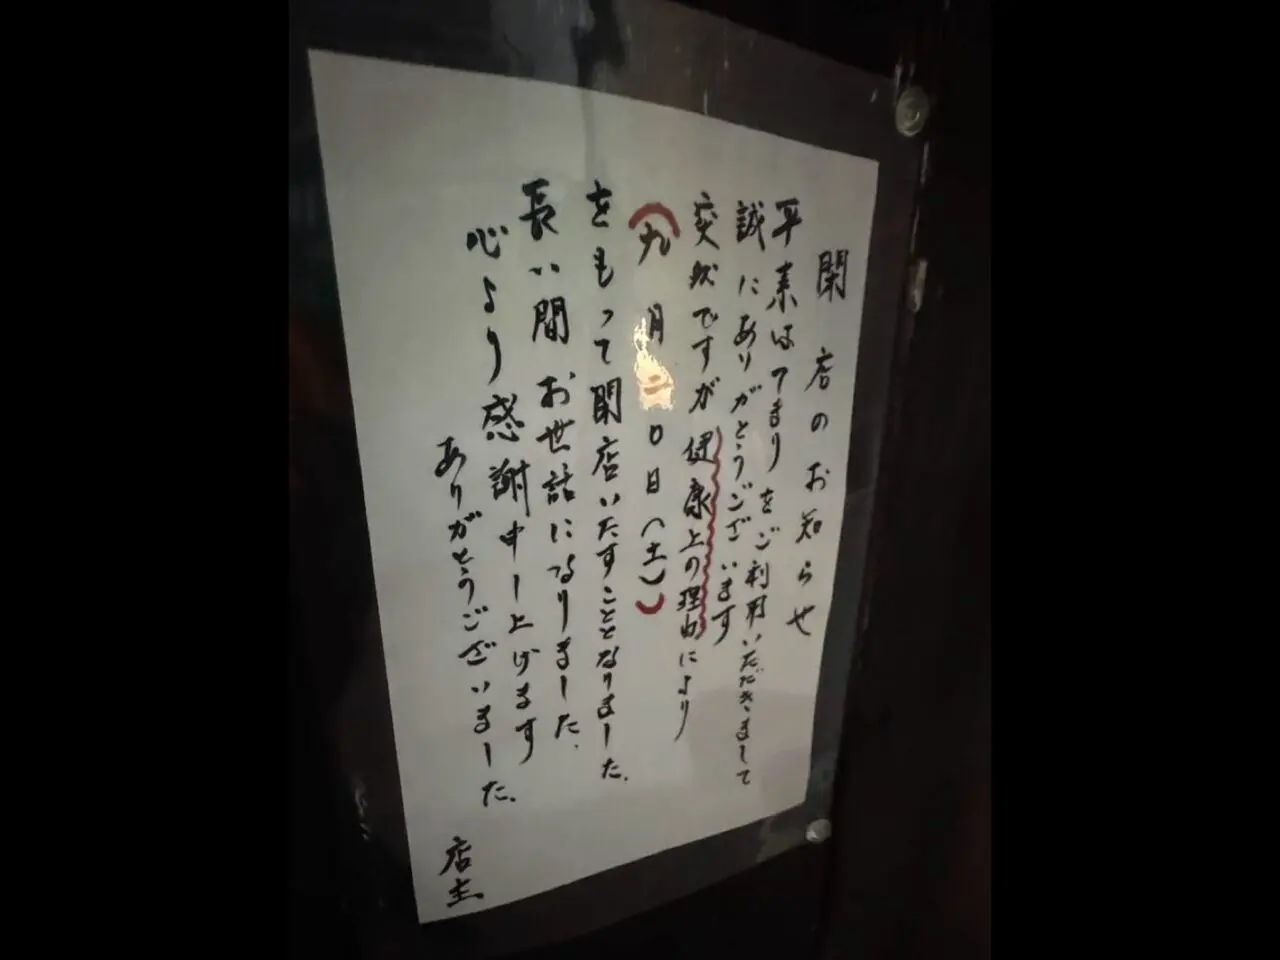 閉店のお知らせ
平素はてまりをご利用いただきまして
誠にありがとうございます
突然ですが健康上の理由により
九月二〇日(土)
をもって閉店いたすこととなりました。
長い間お世話になりました。
心より感謝申し上げます
ありがとうございました。
店主